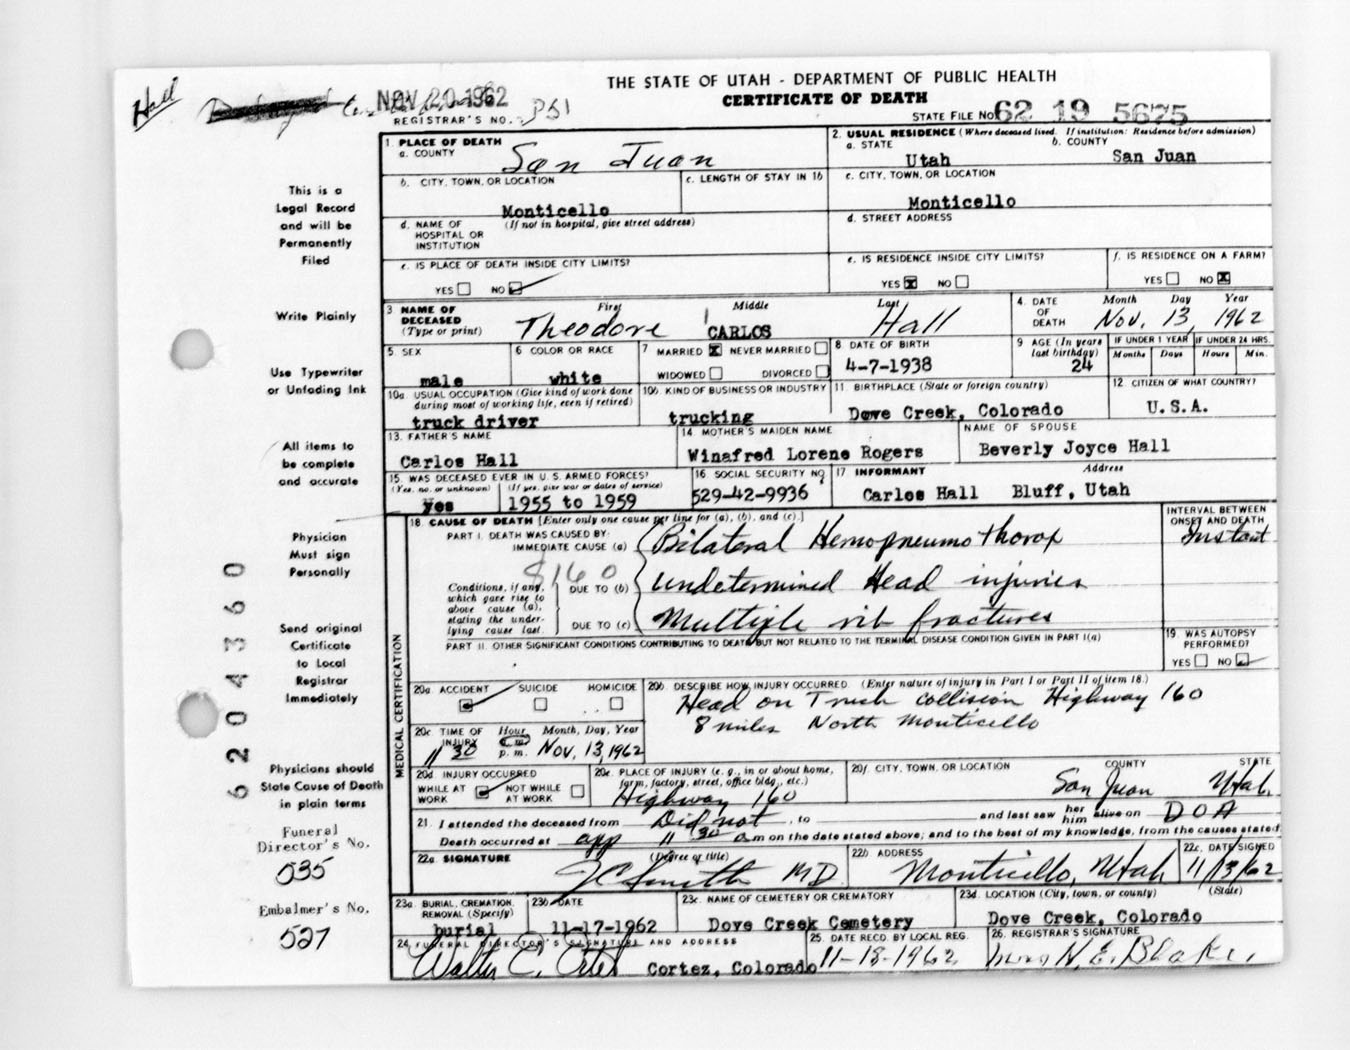 THE STATE OF UTAH - DEPARTMENT OF PUBLIC HEALTH
CERTIFICATE OF DEATH
Hall
NOV 20 1962
REGISTRAR'S NO.
STATE FILE NO. 62 19 5675
This is a
Legal Record
and will be
Permanently
Filed
Write Plainly
Use Typewriter
or Unfading Ink
All items to
be complete
and accurate
Physician
Must sign
Personally
Send original
Certificate
to Local
Registrar
Immediately
Physicians should
State Cause of Death
in plain terms
Funeral
Director's No.
535
Embalmer's No.
527
6204360
1. PLACE OF DEATH
a. COUNTY San Juan
2. USUAL RESIDENCE (Where deceased lived. If institution: Residence before admission)
a. STATE Utah b. COUNTY San Juan
b. CITY, TOWN, OR LOCATION Monticello
c. LENGTH OF STAY IN 1b
c. CITY, TOWN, OR LOCATION Monticello
d. NAME OF HOSPITAL OR INSTITUTION (If not in hospital, give street address)
d. STREET ADDRESS
e. IS PLACE OF DEATH INSIDE CITY LIMITS?
YES NO
e. IS RESIDENCE INSIDE CITY LIMITS?
YES X NO
f. IS RESIDENCE ON A FARM?
YES NO X
3 NAME OF DECEASED (Type or print)
First Middle Last
Theodore CARLOS Hall
4. DATE OF DEATH Month Day Year
Nov. 13, 1962
5. SEX male
6 COLOR OR RACE white
7 MARRIED X NEVER MARRIED
WIDOWED DIVORCED
8 DATE OF BIRTH 4-7-1938
9 AGE (In years last birthday) 24
IF UNDER 1 YEAR Months Days
IF UNDER 24 HRS. Hours Min.
10a. USUAL OCCUPATION (Give kind of work done during most of working life, even if retired)
truck driver
10b. KIND OF BUSINESS OR INDUSTRY
trucking
11. BIRTHPLACE (State or foreign country)
Dove Creek, Colorado
12 CITIZEN OF WHAT COUNTRY?
U.S.A.
13. FATHER'S NAME
Carlos Hall
14 MOTHER'S MAIDEN NAME
Winafred Lorene Rogers
NAME OF SPOUSE
Beverly Joyce Hall
15. WAS DECEASED EVER IN U. S. ARMED FORCES?
(Yes, no, or unknown) (If yes, give war or dates of service)
yes 1955 to 1959
16 SOCIAL SECURITY NO.
529-42-9936
17 INFORMANT Address
Carlos Hall Bluff, Utah
18. CAUSE OF DEATH [Enter only one cause per line for (a), (b), and (c).]
INTERVAL BETWEEN ONSET AND DEATH
PART I. DEATH WAS CAUSED BY:
IMMEDIATE CAUSE (a) Bilateral Hemopneumothorax Instant
8160
Conditions, if any, which gave rise to above cause (a), stating the underlying cause last.
DUE TO (b) undetermined Head injuries
DUE TO (c) Multiple rib fractures
PART II. OTHER SIGNIFICANT CONDITIONS CONTRIBUTING TO DEATH BUT NOT RELATED TO THE TERMINAL DISEASE CONDITION GIVEN IN PART I(a)
19. WAS AUTOPSY PERFORMED?
YES NO
MEDICAL CERTIFICATION
20a. ACCIDENT SUICIDE HOMICIDE
20b. DESCRIBE HOW INJURY OCCURRED. (Enter nature of injury in Part I or Part II of item 18.)
Head on Truck collision Highway 160
8 miles North Monticello
20c TIME OF INJURY Hour a.m. p.m. Month, Day, Year
11 30 Nov. 13, 1962
20d. INJURY OCCURRED
WHILE AT WORK NOT WHILE AT WORK
20e. PLACE OF INJURY (e. g., in or about home, farm, factory, street, office bldg., etc.)
Highway 160
20f. CITY, TOWN, OR LOCATION COUNTY STATE
San Juan Utah
21. I attended the deceased from Did not, to and last saw her him alive on D O A
Death occurred at app 11 30 a m on the date stated above; and to the best of my knowledge, from the causes stated
22a. SIGNATURE (Degree or title)
JC Smith MD
22b ADDRESS
Monticello, Utah
22c. DATE SIGNED
11/13/62
23a. BURIAL, CREMATION, REMOVAL (Specify)
burial
23b. DATE
11-17-1962
23c. NAME OF CEMETERY OR CREMATORY
Dove Creek Cemetery
23d. LOCATION (City, town, or county) (State)
Dove Creek, Colorado
24. FUNERAL DIRECTOR'S SIGNATURE AND ADDRESS
Walter C. Cortez, Colorado
25. DATE RECD. BY LOCAL REG.
11-18-1962
26. REGISTRAR'S SIGNATURE
Mrs N. E. Blake.